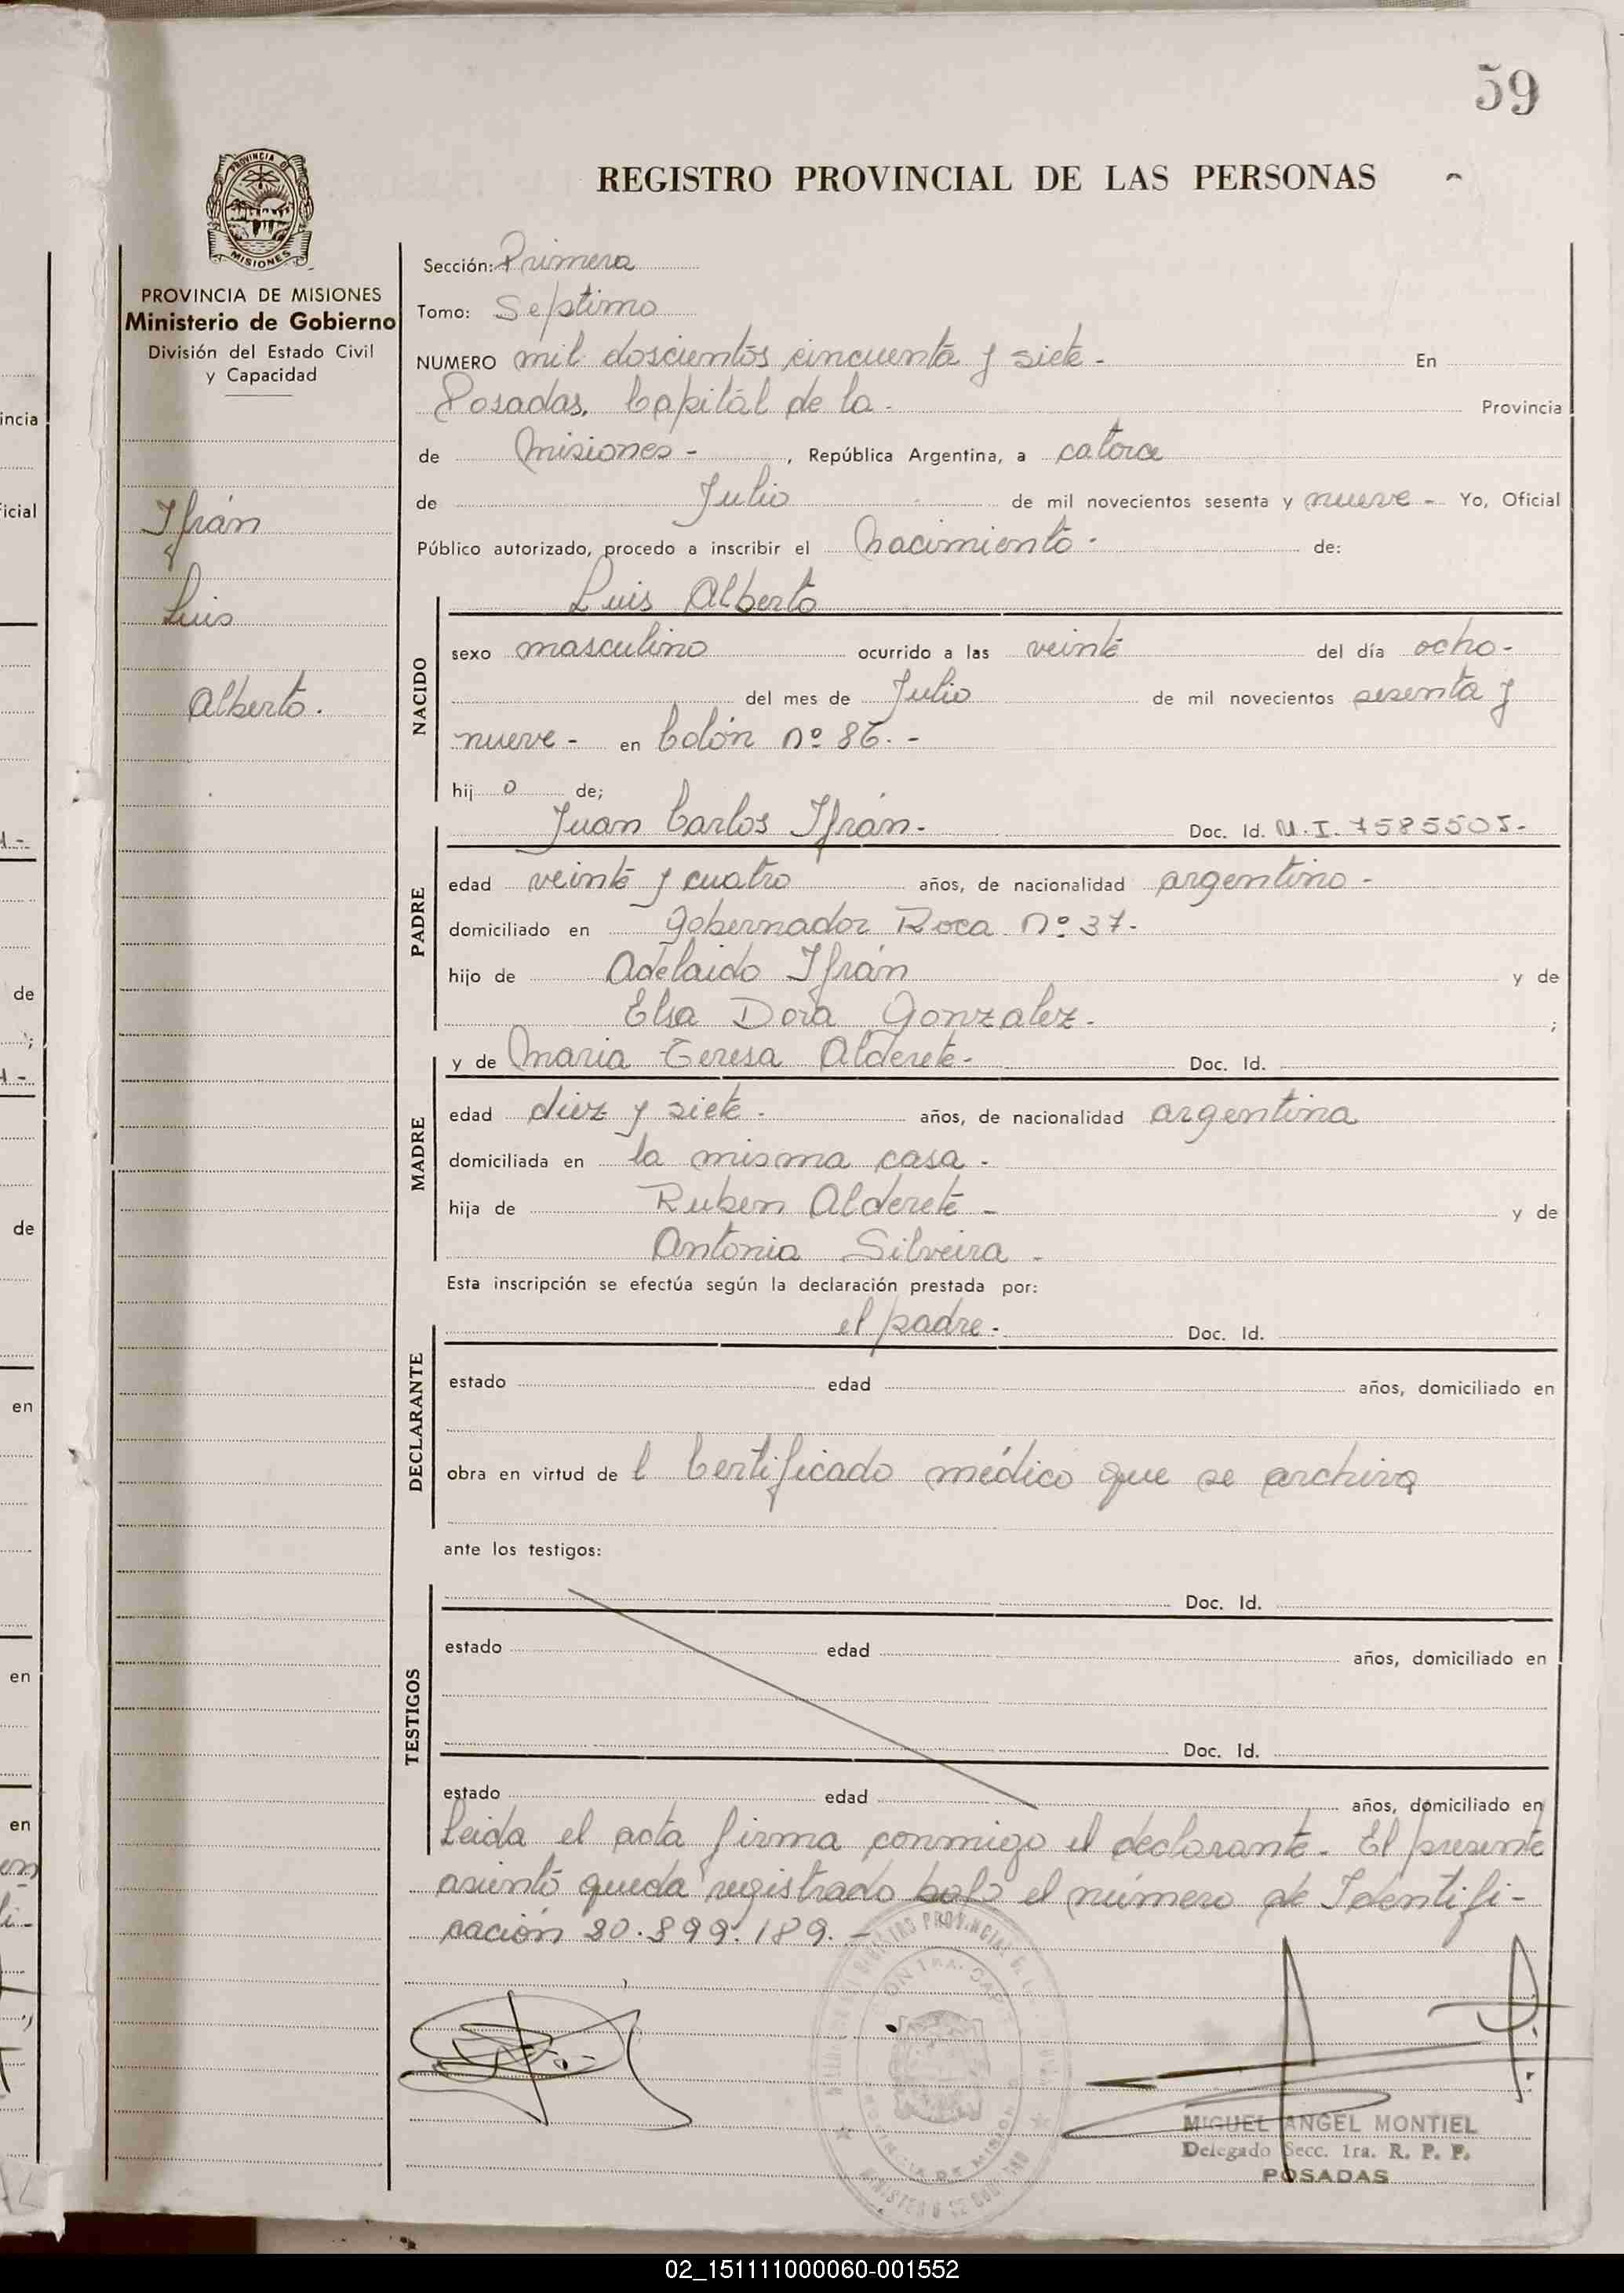 59
REGISTRO PROVINCIAL DE LAS PERSONAS
PROVINCIA DE MISIONES
Ministerio de Gobierno
División del Estado Civil
y Capacidad
Ifrán
Luis
Alberto.
Sección: Primera
Tomo: Septimo
NUMERO mil doscientos cincuenta y siete - En
Posadas, Capital de la - Provincia
de Misiones - , República Argentina, a catorce
de Julio de mil novecientos sesenta y nueve - Yo, Oficial
Público autorizado, procedo a inscribir el Nacimiento - de:
Luis Alberto
NACIDO
sexo masculino ocurrido a las veinte del día ocho -
del mes de Julio de mil novecientos sesenta y
nueve - en Colón nº 86. -
hij o de;
Juan Carlos Ifrán - Doc. Id. M.I. 7585505-
PADRE
edad veinte y cuatro años, de nacionalidad argentino -
domiciliado en Gobernador Roca Nº 37-
hijo de Adelaido Ifrán y de
Elsa Dora Gonzalez - ;
y de Maria Teresa Alderete - Doc. Id.
MADRE
edad diez y siete - años, de nacionalidad argentina
domiciliada en la misma casa -
hija de Ruben Alderete - y de
Antonia Silveira -
Esta inscripción se efectúa según la declaración prestada por:
el padre - Doc. Id.
DECLARANTE
estado edad años, domiciliado en
obra en virtud de l Certificado médico que se archiva
ante los testigos:
Doc. Id.
TESTIGOS
estado edad años, domiciliado en
Doc. Id.
estado edad años, domiciliado en
Leida el acta firma conmigo el declarante - El presente
asiento queda registrado bajo el número de Identifi-
cación 20.899.189. -
MIGUEL ANGEL MONTIEL
Delegado Secc. 1ra. R. P. P.
POSADAS
02_151111000060-001552